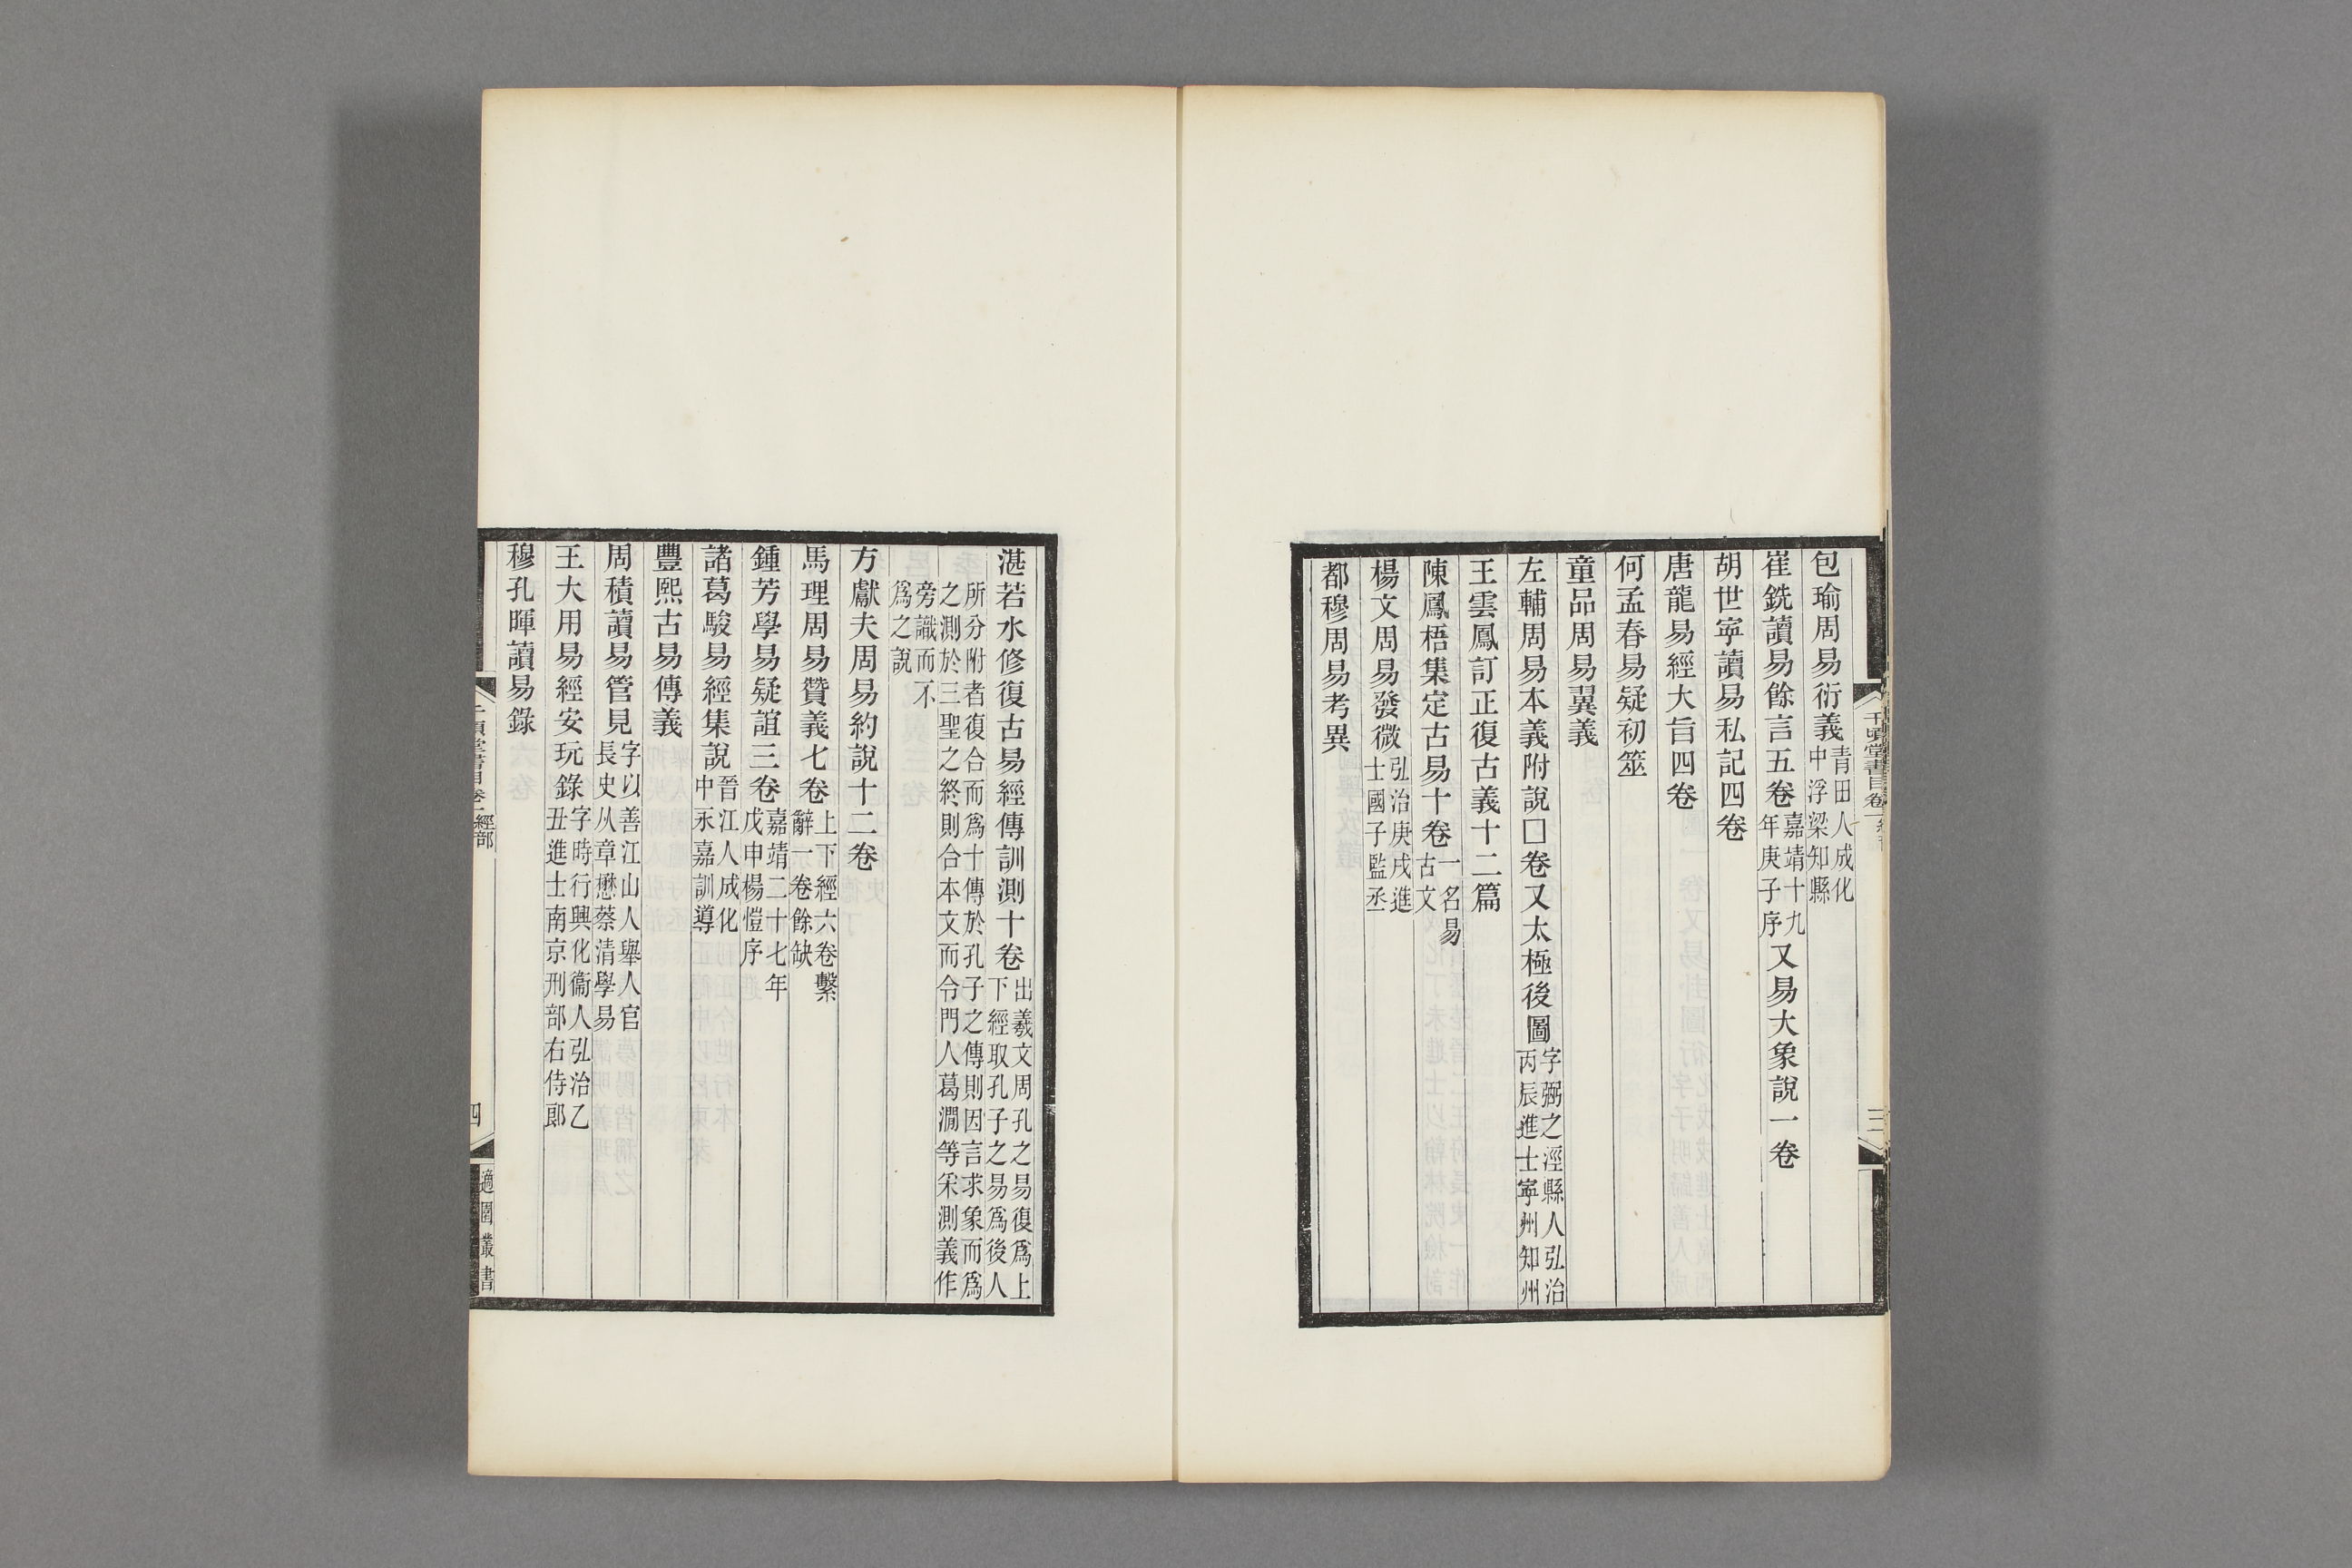 包瑜周易衍義青田人成化中浮梁知縣
崔銑讀易餘言五卷嘉靖十九年庚子序又易大象說一卷
胡世寧讀易私記四卷
唐龍易經大旨四卷
何孟春易疑初筮
童品周易翼義
左輔周易本義附說□卷又太極後圖字弼之涇縣人弘治丙辰進士寧州知州
王雲鳳訂正復古義十二篇
陳鳳梧集定古易十卷一名易古文
楊文周易發微弘治庚戌進士國子監丞
都穆周易考異
千頃堂書目卷一
三
湛若水修復古易經傳訓測十卷出羲文周孔之易復爲上下經取孔子之易爲後人
所分附者復合而爲十傳於孔子之傳則因言求象而爲之測於三聖之終則合本文而令門人葛澗等采測義作
旁識而不爲之說
方獻夫周易約說十二卷
馬理周易贊義七卷上下經六卷繫辭一卷餘缺
鍾芳學易疑誼三卷嘉靖二十七年戊申楊愷序
諸葛駿易經集說晉江人成化中永嘉訓導
豐熙古易傳義
周積讀易管見字以善江山人舉人官長史从章懋蔡清學易
王大用易經安玩錄字時行興化衞人弘治乙丑進士南京刑部右侍郎
穆孔暉讀易錄
千頃堂書目卷一 經部
四
適園叢書